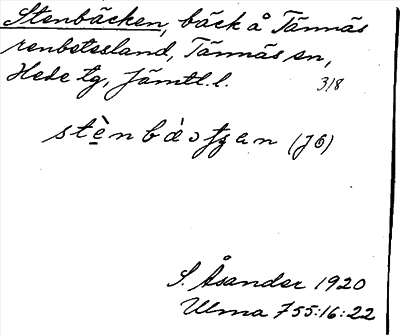 Stenbäcken, bäck å Tännäs
renbetesland, Tännäs sn,
Hede tg, Jämtl. l.
318
(JÖ)
S. Åsander 1920
Ulma 755:16:22